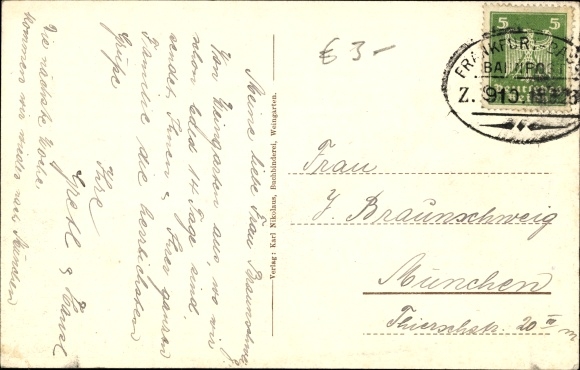 Meine liebe Frau Braunschweig.
Von Weingarten aus, wo wir
schon bald 14 Tage sind
sendet, Ihnen & Ihrer ganzen
Familie die herzlichsten
Grüße
Ihre
Gretl & Hansl
Die nächste Woche
kommen wir wieder nach München
Verlag: Karl Nikolaus, Buchbinderei, Weingarten.
€ 3-
5 5
FRANKFURT
BAHNPOST
Z. 910
Frau
J. Braunschweig
München
Thierschstr. 20 III m